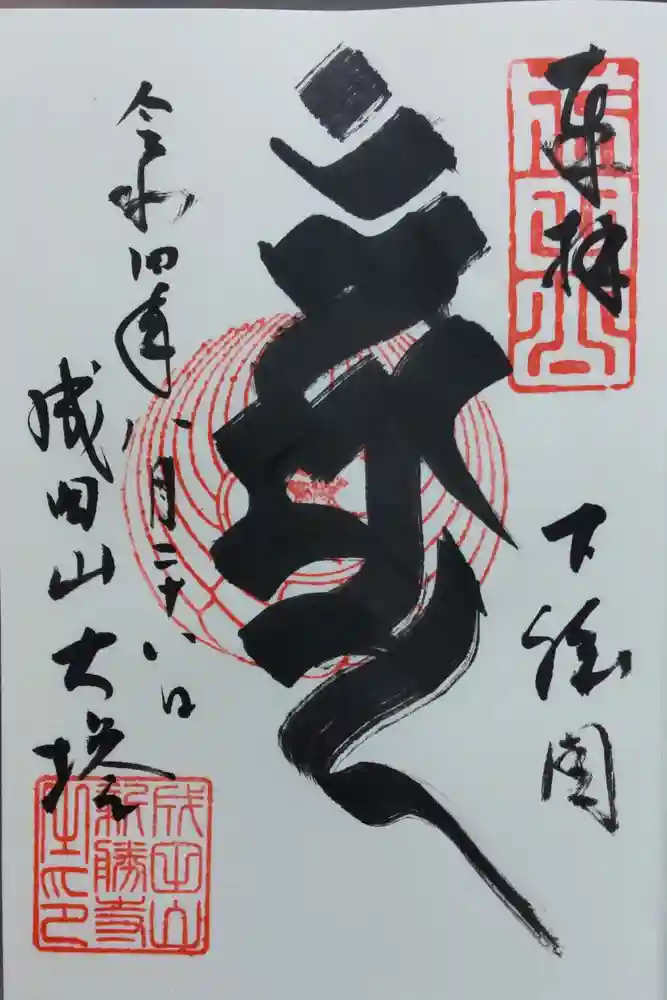 奉拝
成田山
下総国
令和四年八月二十八日
成田山大塔
成田山
新勝寺
之印